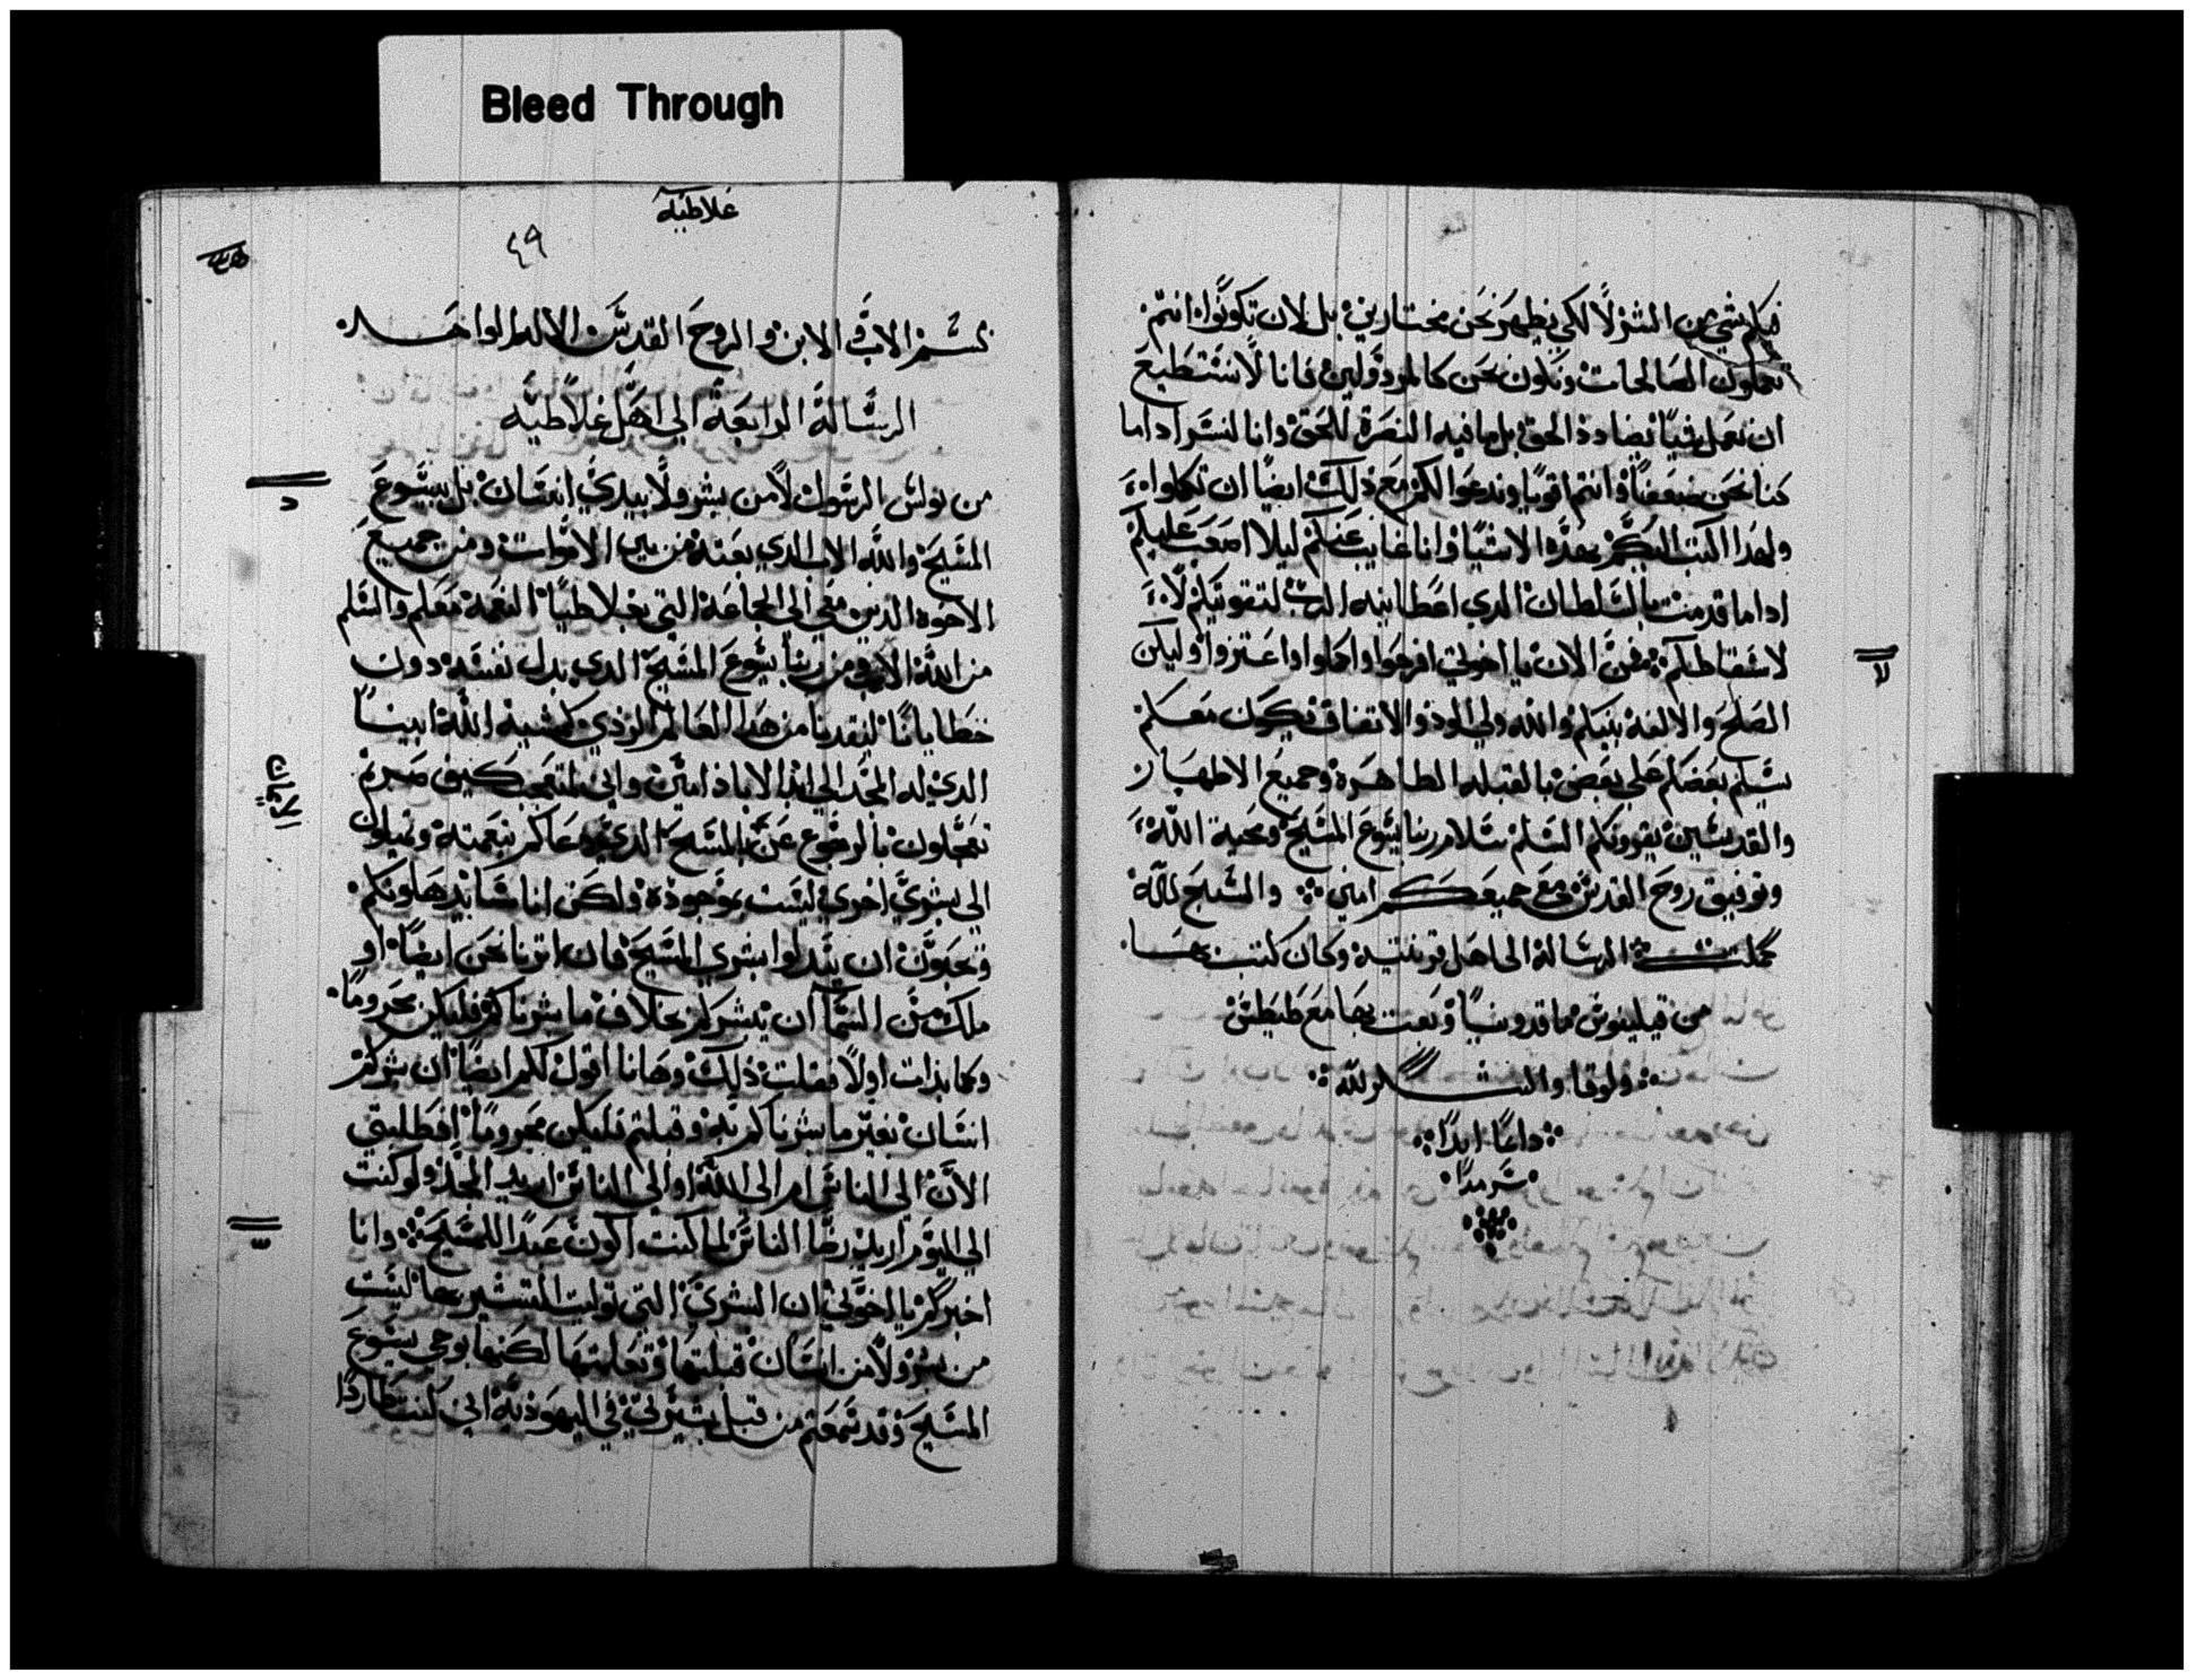 Bleed Through
فيكم شي من الشر لا لكي نظهر نحن مختارين بل لان تكونوا انتم
تعملون الصالحات ونكون نحن كالمرذولين فانا لا نستطيع
ان نعمل شيا يضادد الحق بل ما فيه النصرة للحق وانا لنسر اداما
كنا نحن ضعفا وانتم اقويا وندعوا لكم مع ذلك ايضا ان تكملوا
ولهدا اكتب اليكم بهذه الاشيا وانا غايب عنكم ليلا اصعب عليكم
اداما قدمت بالسلطان الدي اعطانيه الرب لتقوتيكم لا
لاسقاطكم فمن الان يا اخوتي افرحوا واكملوا واعتزوا وليكن
الصلح والالفة بينكم والله ولي الود والاتفاق يكون معكم
يسلم بعضكم علي بعض بالقبله الطاهرة وجميع الاطهار
والقديسين يقرونكم السلم سلام ربنا يسوع المسيح ومحبة الله
وتوفيق روح القدس مع جميعكم امين والسبح لله
كملت الرسالة الي اهل قرنتية وكان كتب بها
من فيليفوس ماقدونيا وبعت بها مع طيطس
ولوقا والشكر لله
دايما ابدا
سرمدا
غلاطيه
٤٩
بسم الاب والابن والروح القدس الاله الواحد
الرسالة الرابعة الي اهل غلاطيه
من بولس الرسول لا من بشر ولا بيدي انسان بل بيسوع
المسيح والله الاب الدي بعته من بين الاموات ومن جميع
الاخوه الدين معي الي الجماعة التي بغلاطيا النعمة معكم والسلم
من الله الاب ومن ربنا يسوع المسيح الدي بدل نفسه دون
خطايانا لينقدنا من هدا العالم الردي كمشية الله ابينا
الدي له المجد الي ابد الاباد امين واني لمتعجب كيف صرتم
تعجلون بالرجوع عن المسيح الدي دعاكم بنعمته وتميلون
الي بشري اخري ليست بموجودة ولكن اناسا يدهلونكم
ويحبون ان يبدلوا بشري المسيح فان اتينا نحن ايضا او
ملك من السما ان يبشركم بخلاف ما بشرناكم فليكن محروما
وكما بدات اولا فقلت ذلك وهانا اقول لكم ايضا ان بشركم
انسان بغير ما بشرناكم به وقبلتم فليكن محروما افطلبتي
الان الي الناس ام الي الله او الي الناس اريد المجد ولو كنت
الي اليوم اريد رضا الناس لما كنت اكون عبدا للمسيح وانا
اخبركم يا اخوتي ان البشري التي توليت التبشير بها ليست
من بشر ولا من انسان قبلتها وتعلمتها لكنها بوحي يسوع
المسيح وقد سمعتم من قبل بسيرتي في اليهودية اني كنت طاردا
الايمان